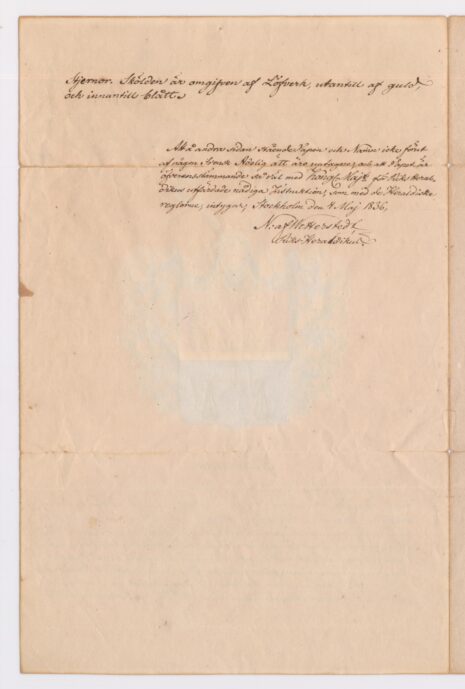 Stjernor. Skölden är omgifven af Löfverk, utantill af guld,
och innantill blått.
Att å andra sidan stående Vapen och Namn icke förut
af någon Svensk Adelig ätt äro antagne; och att Vapnet är
öfverensstämmande så väl med Kongl. Maj:ts för Riks Heral-
dikus utfärdade nådiga Instruktion, som med de Heraldiske
reglorne, intygar; Stockholm den 4 Maj 1836.
N: af Wetterstedt
Riks-Heraldikus